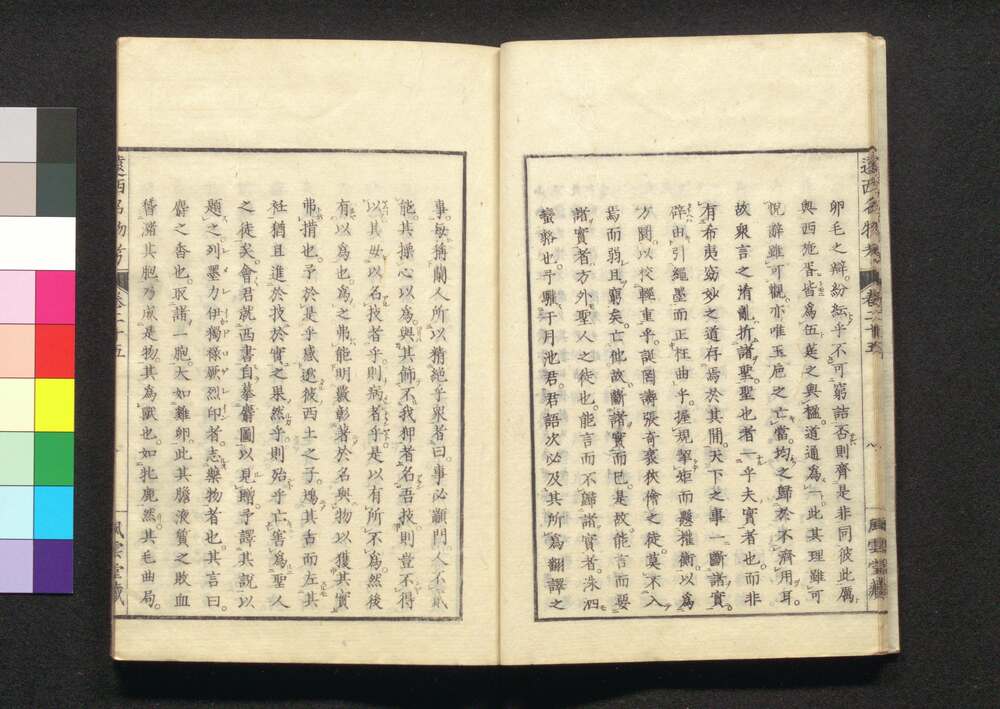 卵毛之辯。紛紜乎不可窮詰否則齊是非同彼此厲
與西施吾皆爲伍莛之與楹。道通爲一此其理雖可
悅辭雖可觀。亦唯玉巵之亡當。均之歸於不齊用耳
故衆言之淆亂折諸聖。聖也者一乎夫實者也。而非
有希夷窈妙之道存焉於其間。天下之事一斷諸實。
辟由引繩墨而正枉曲乎。握規擧矩而懸權衡以爲
方圓以佼輕重乎。誕罔譸張奇袤狹憸之徒。莫不入
焉而弱且窮矣。亡他故。斷諸實而已。是故能言而要
諸實者方外聖人之徒也。能言而不歸諸實者洙泗
蠻貉也予職于月池君。君語次必及其所爲翻譯之
遠西名物考
卷二十五
八
風雲堂藏
事。每稱蘭人所以精絕乎衆者曰。事必顓門人不貳
能。其操心以爲。與其飾不我狎者名吾技。則豈不得
以其母以名技者乎。則病者乎。是以有所不爲。然後
有以爲也。爲之弗能明徵彰著於名與物以獲其實
弗措也。予於是乎感。邈彼西土之子。塢其舌而左其
衽猶且進於技於實之果然乎。則殆乎亡害爲聖人
之徒矣。會君就西書自摹麝圖以見贈。予譯其說以
題之列墨力伊獨祿厥烈印者。志藥物者也。其言曰。
麝之香也。取諸一胞。大如雞卵。此其膽液質之敗血
瀦其胞乃成是物。其爲獸也。如牝鹿然。其毛曲局。
遠西名物考
卷二十五
風雲堂藏